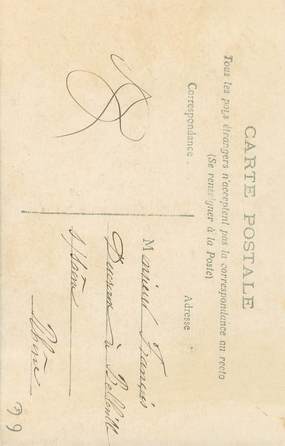 CARTE POSTALE
Tous les pays étrangers n'acceptent pas la correspondance au recto
(Se renseigner à la Poste)
Correspondance
Adresse
Monsieur Francis
à Belleville
s/Saône
Rhône
99